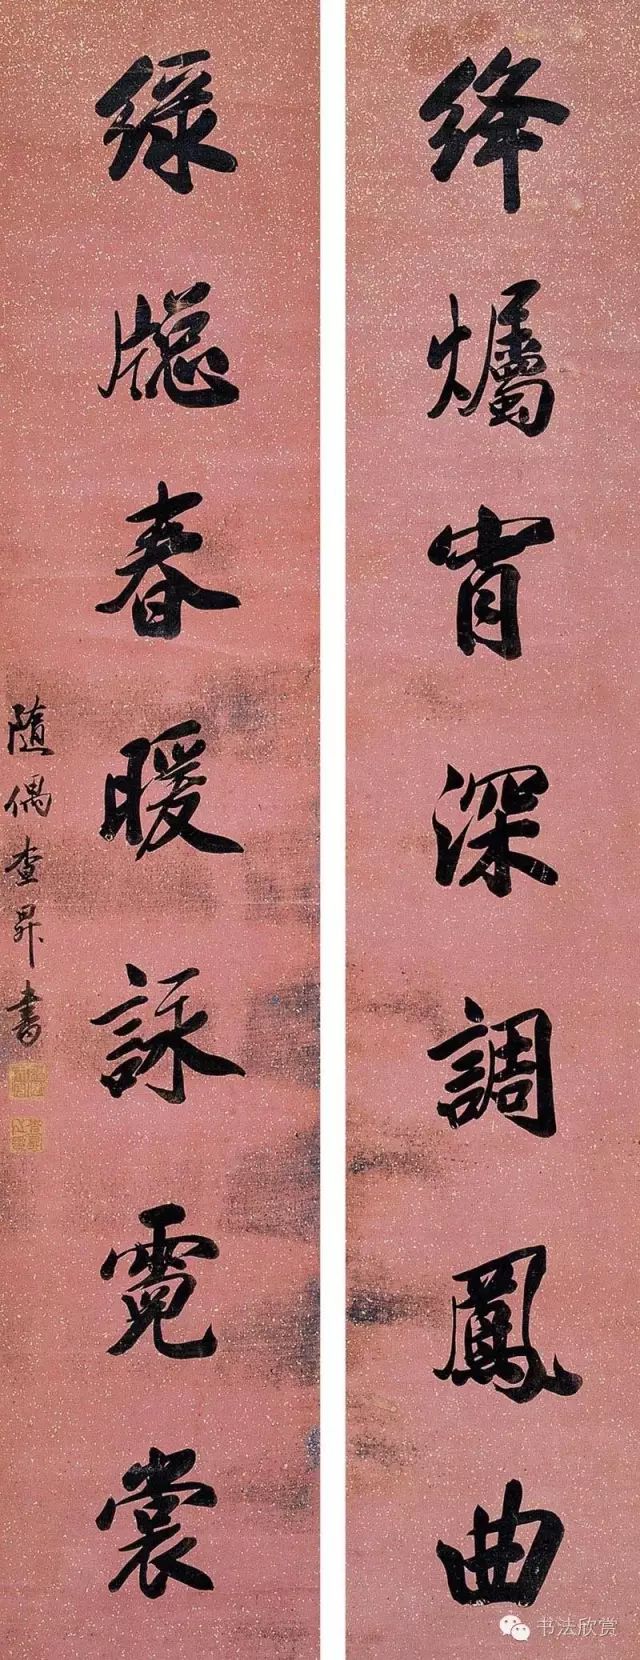 绛爥宵深調鳳曲
緑牎春暖詠霓裳
隨偶查昇書
书法欣赏